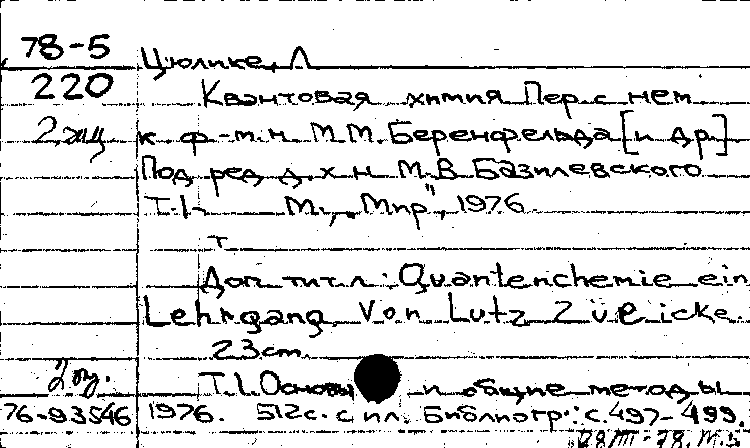 78-5 Цюлике, Л
220 Квантовая химия Пер. с нем
2 экз к ф-м.н М.М. Беренфельда [и др]
Под ред д.х.н М.В Базилевского
Т.1- М., „Мир", 1976.
т
Доп. тит. л: Quantenchemie ein
Lehrgang Von Lutz Zülicke.
23 cm.
Т.1. Основы и общие методы
76-93546 1976. 512с. с ил. Библиогр.: с. 497-499